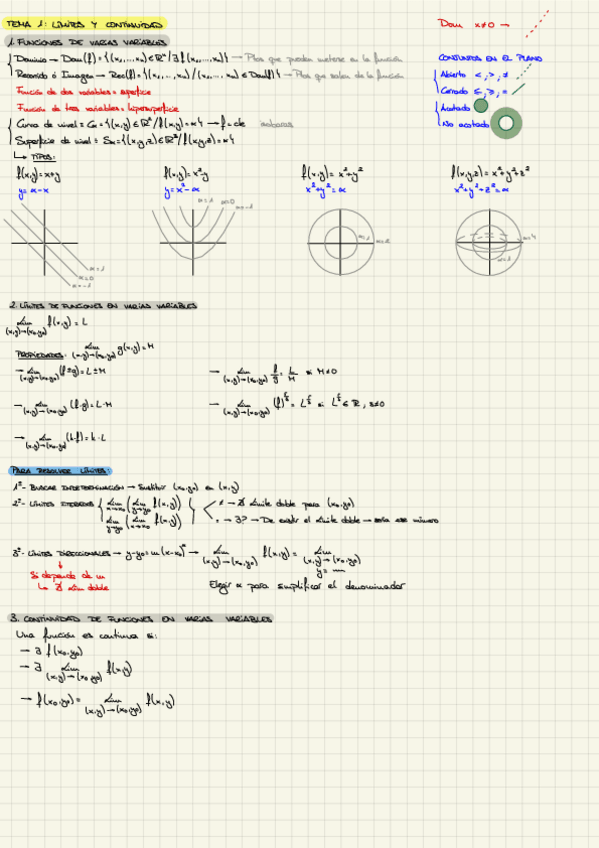 TEMA 1: LÍMITES Y CONTINUIDAD
Dom x≠0 →
1. FUNCIONES DE VARIAS VARIABLES
Dominio → Dom(f) = {(x₁,...xₙ) ∈ ℝⁿ / ∃ f(x₁,...,xₙ)} — Ptos que pueden meterse en la función
Recorrido o Imagen → Rec(f) = {(x₁,...xₙ) / (x₁,...,xₙ) ∈ Dom(f)} — Ptos que salen de la función
Función de dos variables = superficie
Función de tres variables = hipersuperficie
CONJUNTOS EN EL PLANO
Abierto <, >, ≠
Cerrado ≤, ≥, =
Acotado
No acotado
Curva de nivel = Cα = {(x,y) ∈ ℝ² / f(x,y) = α} → f = cte isobaras
Superficie de nivel = Sα = {(x,y,z) ∈ ℝ³ / f(x,y,z) = α}
↳ TIPOS:
f(x,y) = x+y f(x,y) = x²-y f(x,y) = x²+y² f(x,y,z) = x²+y²+z²
y = α-x y = x²-α x²+y² = α x²+y²+z² = α
α=1 α=0 α=-1
α=1 α=0 α=-1
α=1
α=4
α=1
2. LÍMITES DE FUNCIONES EN VARIAS VARIABLES
lim (x,y)→(x₀,y₀) f(x,y) = L
PROPIEDADES: lim (x,y)→(x₀,y₀) g(x,y) = M
→ lim (x,y)→(x₀,y₀) (f±g) = L±M → lim (x,y)→(x₀,y₀) f/g = L/M si M≠0
→ lim (x,y)→(x₀,y₀) (f·g) = L·M → lim (x,y)→(x₀,y₀) (f)^(r/s) = L^(r/s) si L^(r/s) ∈ ℝ, s≠0
→ lim (x,y)→(x₀,y₀) (k·f) = k·L
PARA RESOLVER LÍMITES:
1º- BUSCAR INDETERMINACIÓN → Sustituir (x₀,y₀) en (x,y)
2º- LÍMITES ITERADOS lim x→x₀ (lim y→y₀ f(x,y)) ≠ → ∄ límite doble para (x₀,y₀)
lim y→y₀ (lim x→x₀ f(x,y)) = → ∃? → De existir el límite doble → sería ese mismo
3º- LÍMITES DIRECCIONALES → y-y₀ = m(x-x₀)^α → lim (x,y)→(x₀,y₀) f(x,y) = lim (x,y)→(x₀,y₀) y=
Si depende de m
↳ ∄ lim doble
Elegir α para simplificar el denominador
3. CONTINUIDAD DE FUNCIONES EN VARIAS VARIABLES
Una función es continua si:
→ ∃ f(x₀,y₀)
→ ∃ lim (x,y)→(x₀,y₀) f(x,y)
→ f(x₀,y₀) = lim (x,y)→(x₀,y₀) f(x,y)